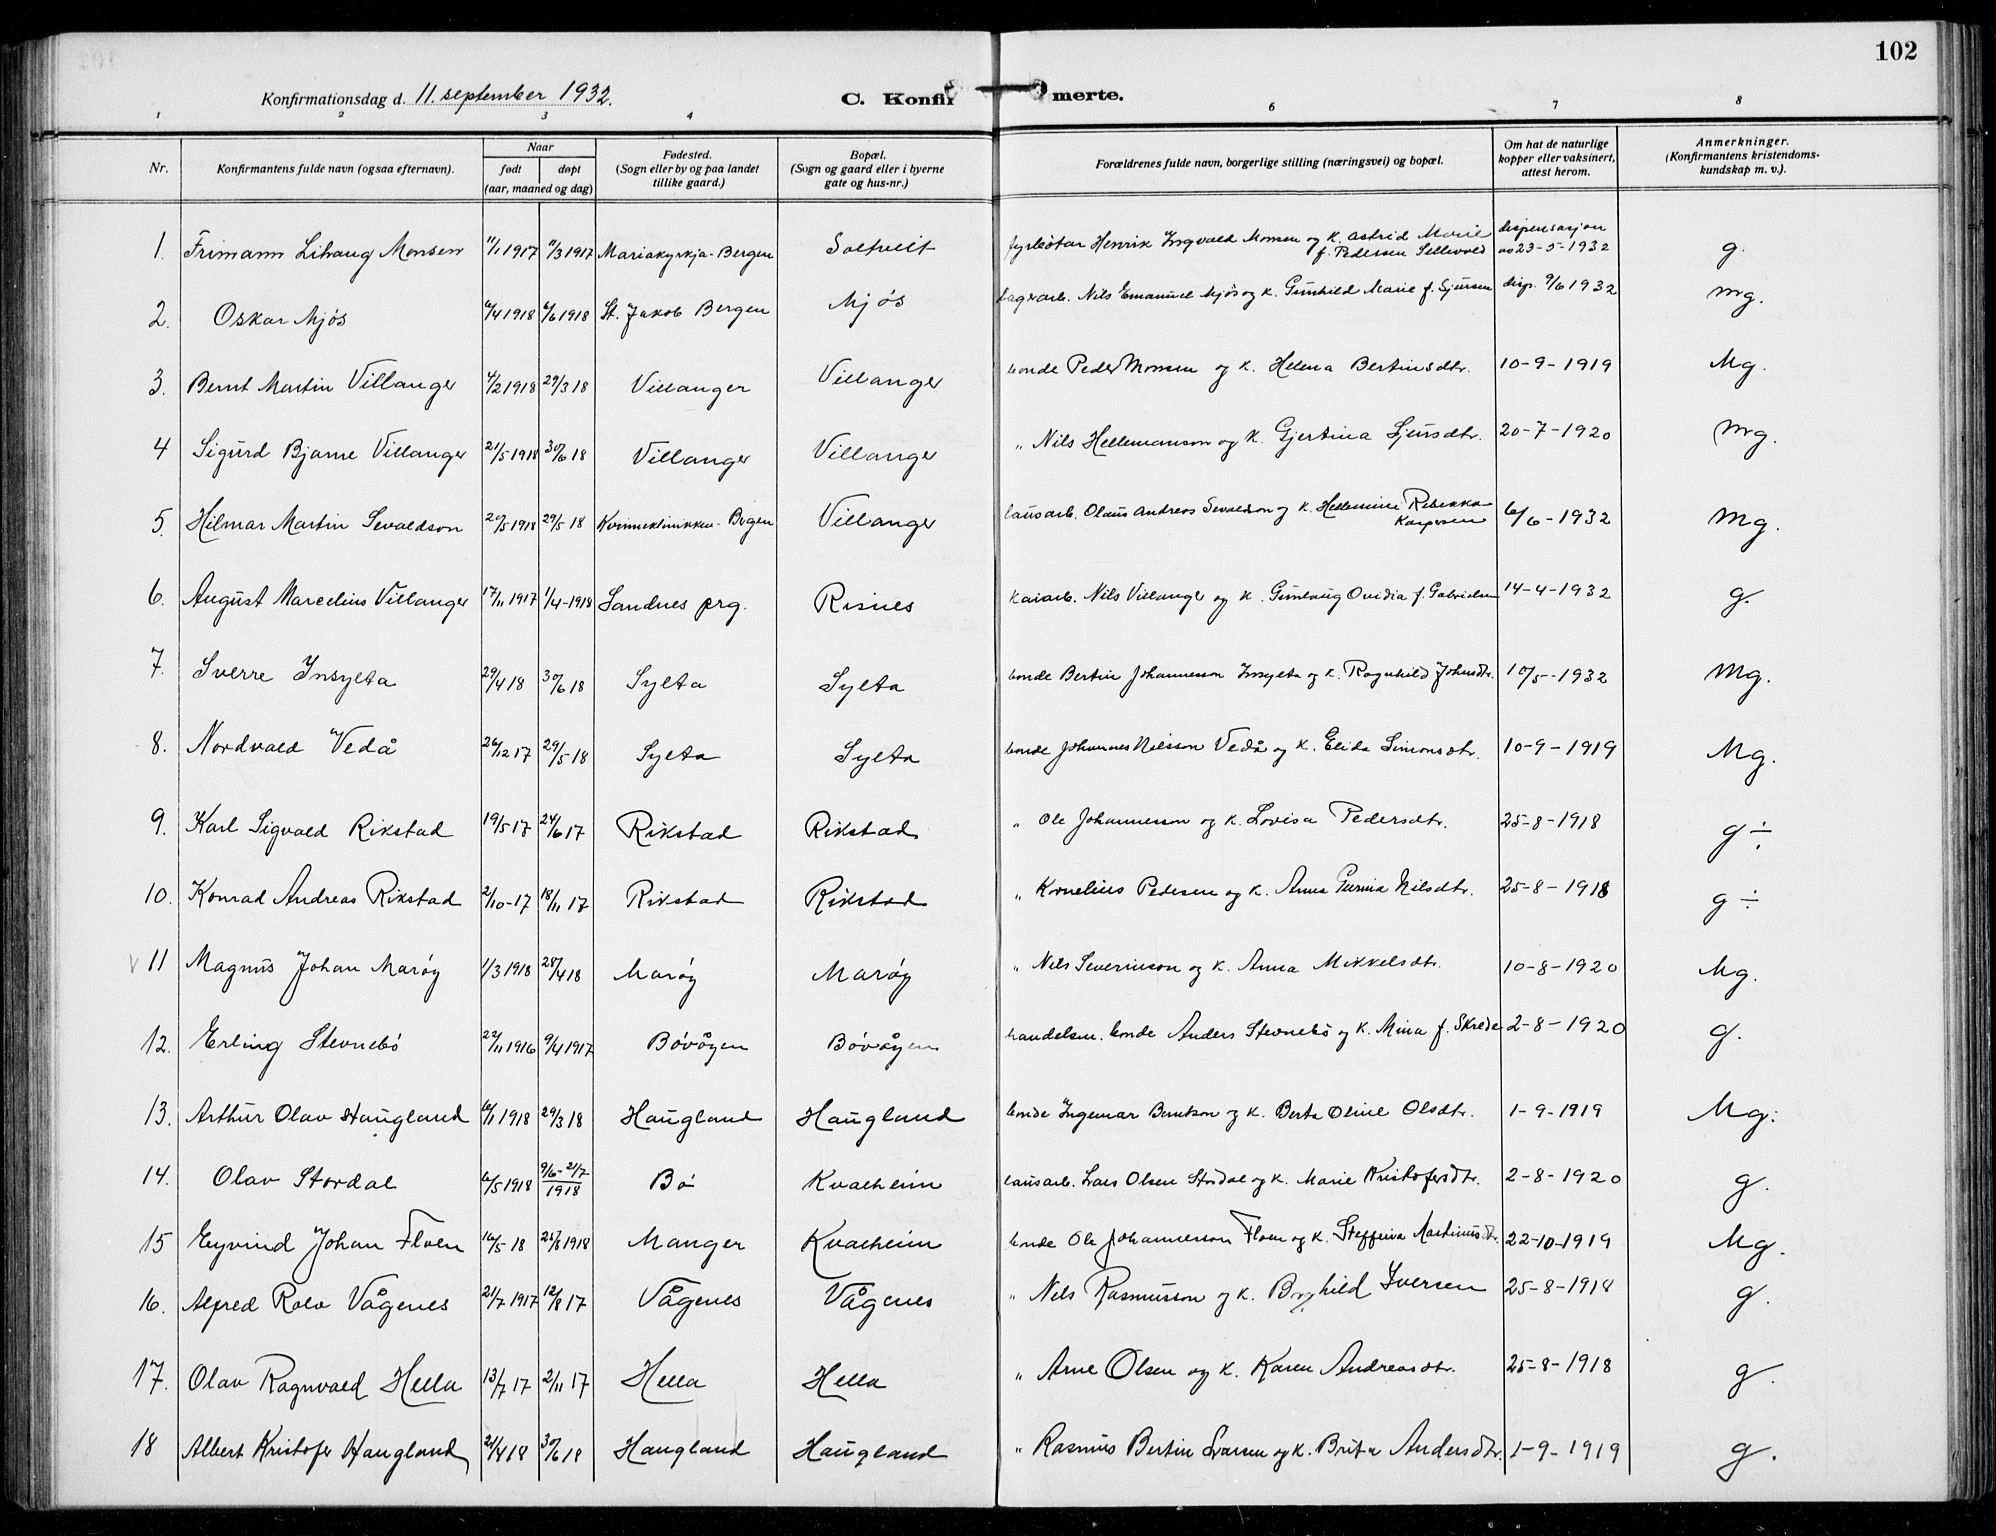 102
Konfirmationsdag d. 11. september 1932. C. Konfir merte.
1 2 3 4 6 7 8
Nr. Konfirmantens fulde navn (ogsaa efternavn). Naar født døpt (aar, maaned og dag) Fødested. (Sogn eller by og paa landet tillike gaard.) Bopæl. (Sogn og gaard eller i byerne gate og hus-nr.) Forældrenes fulde navn, borgerlige stilling (næringsvei) og bopæl. Om hat de naturlige kopper eller vaksinert, attest herom. Anmerkninger. (Konfirmantens kristendoms-kundskap m. v.).
1. Frimann Lihaug Monsen 11/1 1917 11/3 1917 Mariakyrkja - Bergen Soltveit fyrbøtar Henrik Ingvald Monsen og k. Astrid Marie f. Pedersen Sellevold dispensasjon av 23-5-1932 g.
2. Oskar Mjøs 6/4 1918 6/6 1918 St. Jakob Bergen Mjøs lagerarb. Nils Emanuel Mjøs og k. Gunhild Marie f. Sjursen disp. 9/6 1932 Mg.
3. Bernt Martin Villanger 4/2 1918 29/3 18 Villanger Villanger bonde Peder Monsen og k. Helena Bertinsdtr. 10-9-1919 Mg.
4 Sigurd Bjarne Villanger 21/5 1918 30/6 18 Villanger Villanger " Nils Hellemanson og k. Gjertina Sjursdtr. 20-7-1920 Mg.
5. Hilmar Martin Sevaldson 20/5 1918 29/5 18 Kvinneklinikken - Bergen Villanger lausarb. Olaus Andreas Sevaldson og k. Hellemine Rebekka Kaspersen 6/6-1932 Mg.
6. August Marcelius Villanger 17/11 1917 1/4-1918 Sandnes prg. Risnes kaiarb. Nils Villanger og k. Gunlaug Ovidia f. Gabrielsen 14-4-1932 g.
7. Sverre Insylta 29/4 18 30/6 18 Sylta Sylta bonde Bertin Johannesson Insylta og k. Ragnhild Johnsdtr. 10/5-1932 Mg.
8. Nordvald Vedå 26/12 17 29/5-18 Sylta Sylta bonde Johannes Nilsson Vedå og k. Elida Simonsdtr. 10-9-1919 Mg.
9. Karl Sigvald Rikstad 19/5 17 24/6 17 Rikstad Rikstad " Ole Johannesson og k. Lovisa Pedersdtr. 25-8-1918 g ÷
10. Konrad Andreas Rikstad 2/10-17 18/11 17 Rikstad Rikstad " Kornelius Pedersen og k. Anna Gurina Nilsdtr. 25-8-1918 g ÷
11 Magnus Johan Marøy 1/3 1918 28/4 18 Marøy Marøy " Nils Severinson og k. Anna Mikkelsdtr. 10-8-1920 Mg.
12. Erling Stevnebø 22/11 1916 9/4 1917 Bøvågen Bøvågen handelsm. bonde Anders Stevnebø og k. Mina f. Skrede 2-8-1920 g.
13. Arthur Olav Haugland 6/1 1918 29/3 18 Haugland Haugland bonde Ingemar Berntson og k. Berta Oline Olsdtr. 1-9-1919 Mg.
14. Olav Stordal 6/5 1918 9/6-21/7 1918 Bø Kvalheim lausarb. Lars Olsen Stordal og k. Marie Kristofersdtr. 2-8-1920 g.
15 Eyvind Johan Floen 16/5 18 25/8 1918 Manger Kvalheim bonde Ole Johannesson Floen og k. Steffina Martinusdtr. 22-10-1919 Mg.
16. Alfred Rolv Vågenes 21/7 1917 12/8 17 Vågenes Vågenes " Nils Rasmusson og k. Borghild Iversen 25-8-1918 g.
17. Olav Ragnvald Hella 13/7 17 2/11 17 Hella Hella " Arne Olsen og k. Karen Andreasdtr. 25-8-1918 g.
18 Albert Kristofer Haugland 21/4 18 30/6 18 Haugland Haugland " Rasmus Bertin Larsen og k. Brita Andersdtr. 1-9-1919 g.